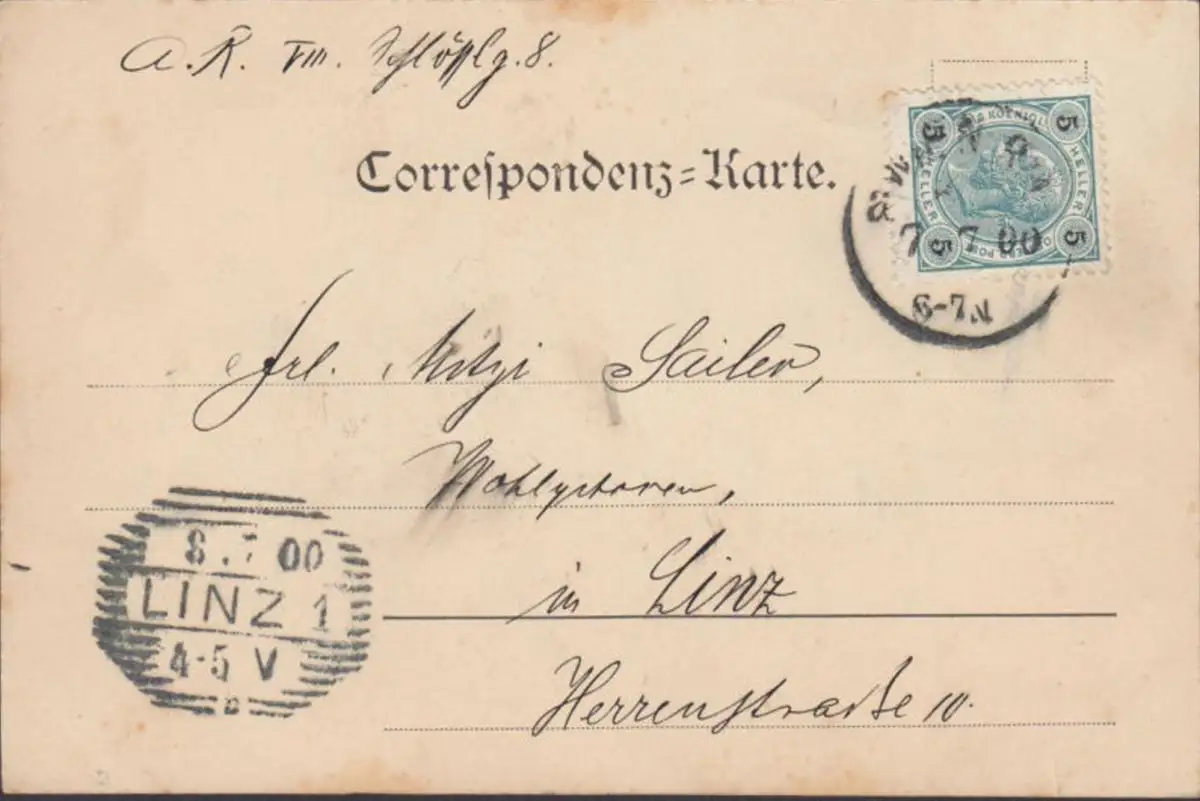 A. R. VIII. Schlösslg. 8.
Correspondenz-Karte.
5 5
HELLER HELLER
5 5
7 7 00
6-7 N
Frl. Mitzi Sailer,
Wohlgeboren,
in Linz
Herrenstraße 10.
8. 7 00
LINZ 1
4-5 V